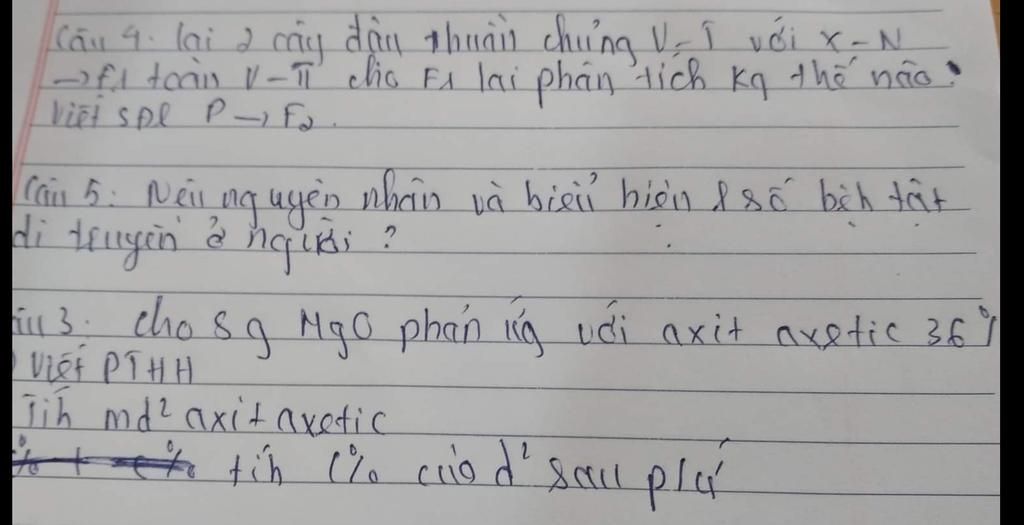 Câu 4. lai 2 cây đậu thuần chủng V-T với X-N
→ F1 toàn V-T cho F1 lai phân tích KQ thế nào?
Viết SĐL P → F2.
Câu 5: Nêu nguyên nhân và biểu hiện 1 số bệh tật
di truyền ở người?
âu 3. cho 8g MgO phản ứng với axit axetic 36%
Viết PTHH
Tíh md² axit axetic
tíh C% của d² sau p/ứ